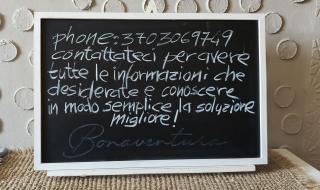 phone: 3703069749
contattateci per avere
tutte le informazioni che
desiderate e conoscere
in modo semplice la soluzione
migliore!
Bonaventura